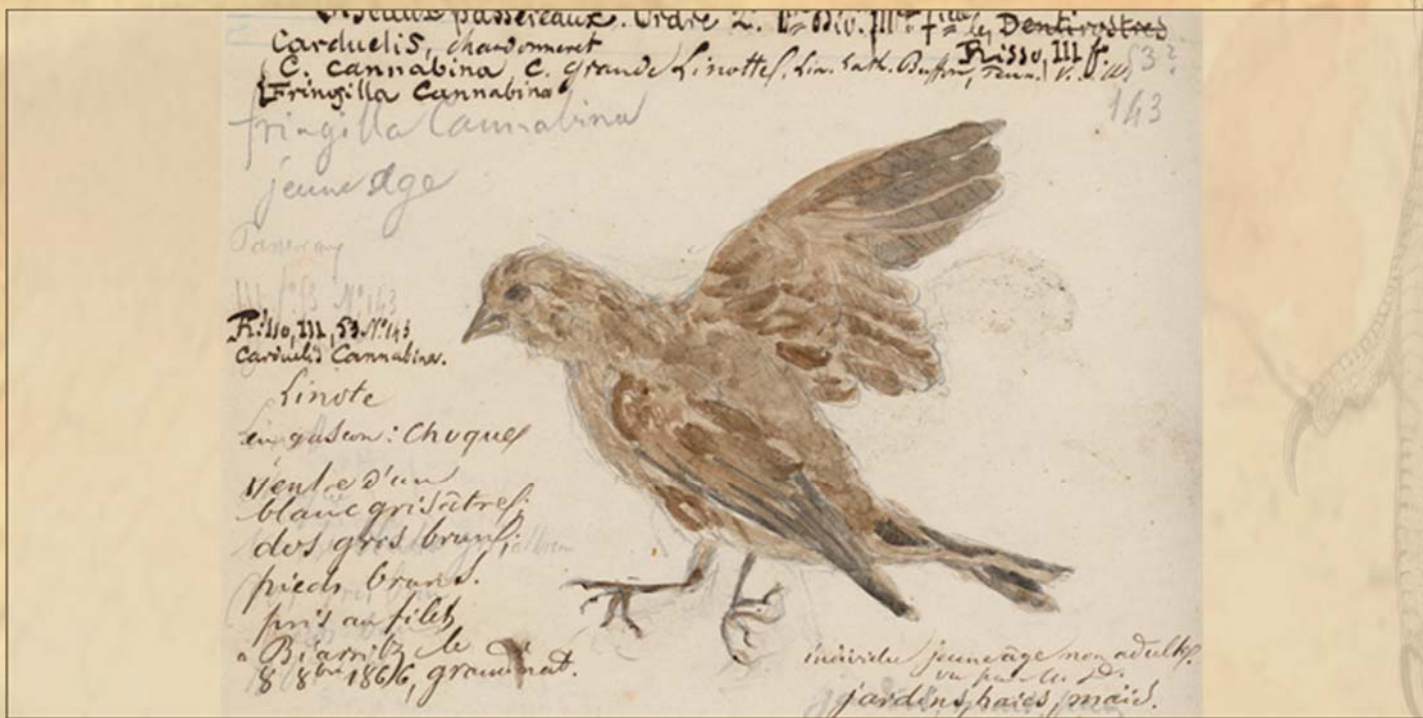 Oiseaux passereaux. Ordre 2.
les Dentirostres
Carduelis, chardonneret
Risso, III f. 53?
C. cannabina, C. grande Linotte, Lin. Lath. Buffon,
Fringilla Cannabina
143
fringilla Cannabina
jeune age
Passereaux
III f. 53 N° 143
Risso, III, 53 N° 143
Carduelis Cannabina.
Linote
en gascon: Choque
ventre d'un
blanc grisâtre;
dos gris brun;
pieds bruns.
pris au filet
à Biarritz le
8 8bre 1866,
individu jeune âge non adulte.
jardins, haies, maïs.